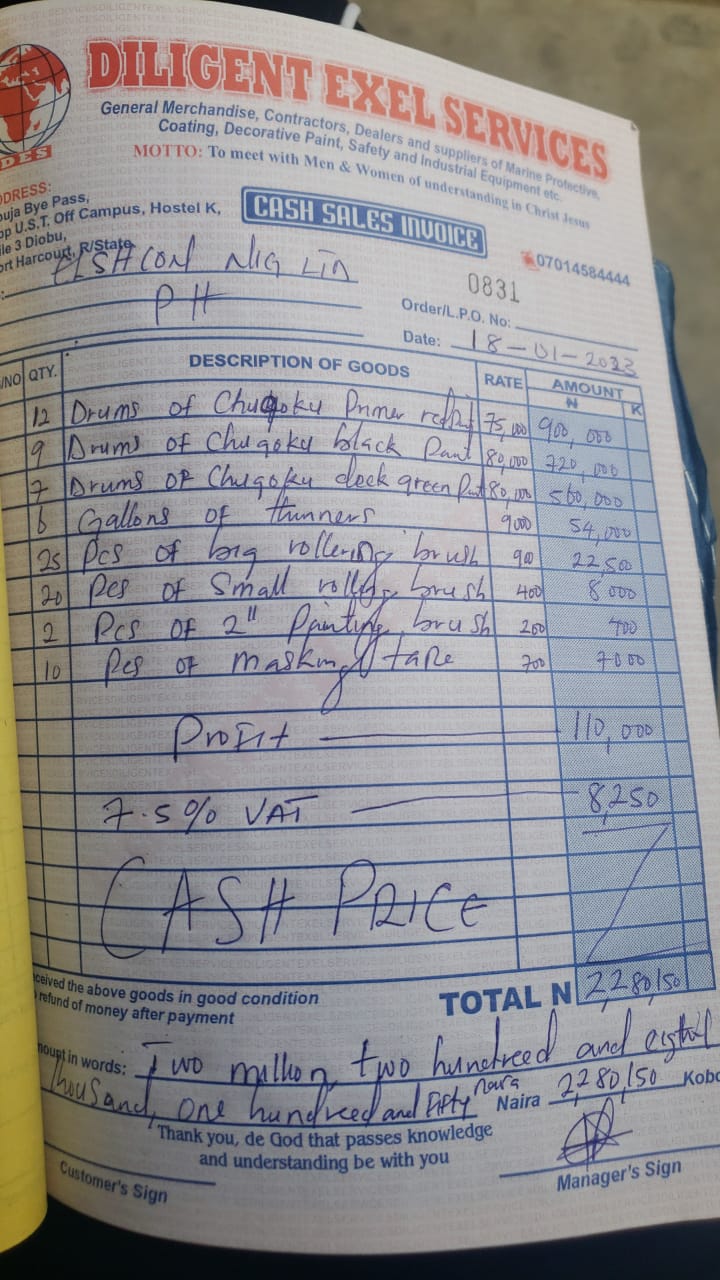 DES
DILIGENT EXEL SERVICES
General Merchandise, Contractors, Dealers and suppliers of Marine Protective,
Coating, Decorative Paint, Safety and Industrial Equipment etc.
MOTTO: To meet with Men & Women of understanding in Christ Jesus
DDRESS:
uja Bye Pass,
pp U.S.T. Off Campus, Hostel K,
ile 3 Diobu,
ort Harcourt, R/State
CASH SALES INVOICE
07014584444
0831
ELSHCON NIG LTD
PH
Order/L.P.O. No:
Date: 18-01-2023
/NO QTY. DESCRIPTION OF GOODS RATE AMOUNT
₦ K
12 Drums of Chugoku Primer red 75,000 900,000
9 Drums of Chugoku black Paint 80,000 720,000
7 Drums of Chugoku deck green Paint 80,000 560,000
6 Gallons of thinners 9000 54,000
25 Pcs of big rollering brush 900 22,500
20 Pcs of Small rolling brush 400 8000
2 Pcs of 2" Painting brush 200 400
10 Pcs of masking tape 700 7000
Profit 110,000
7.5% VAT 8,250
CASH PRICE
ceived the above goods in good condition
refund of money after payment
TOTAL N 2,280,150
mount in words: Two million two hundreed and eighty
thousand, one hundreed and fifty naira Naira 2,280,150 Kobo
Thank you, de God that passes knowledge
and understanding be with you
Customer's Sign
Manager's Sign